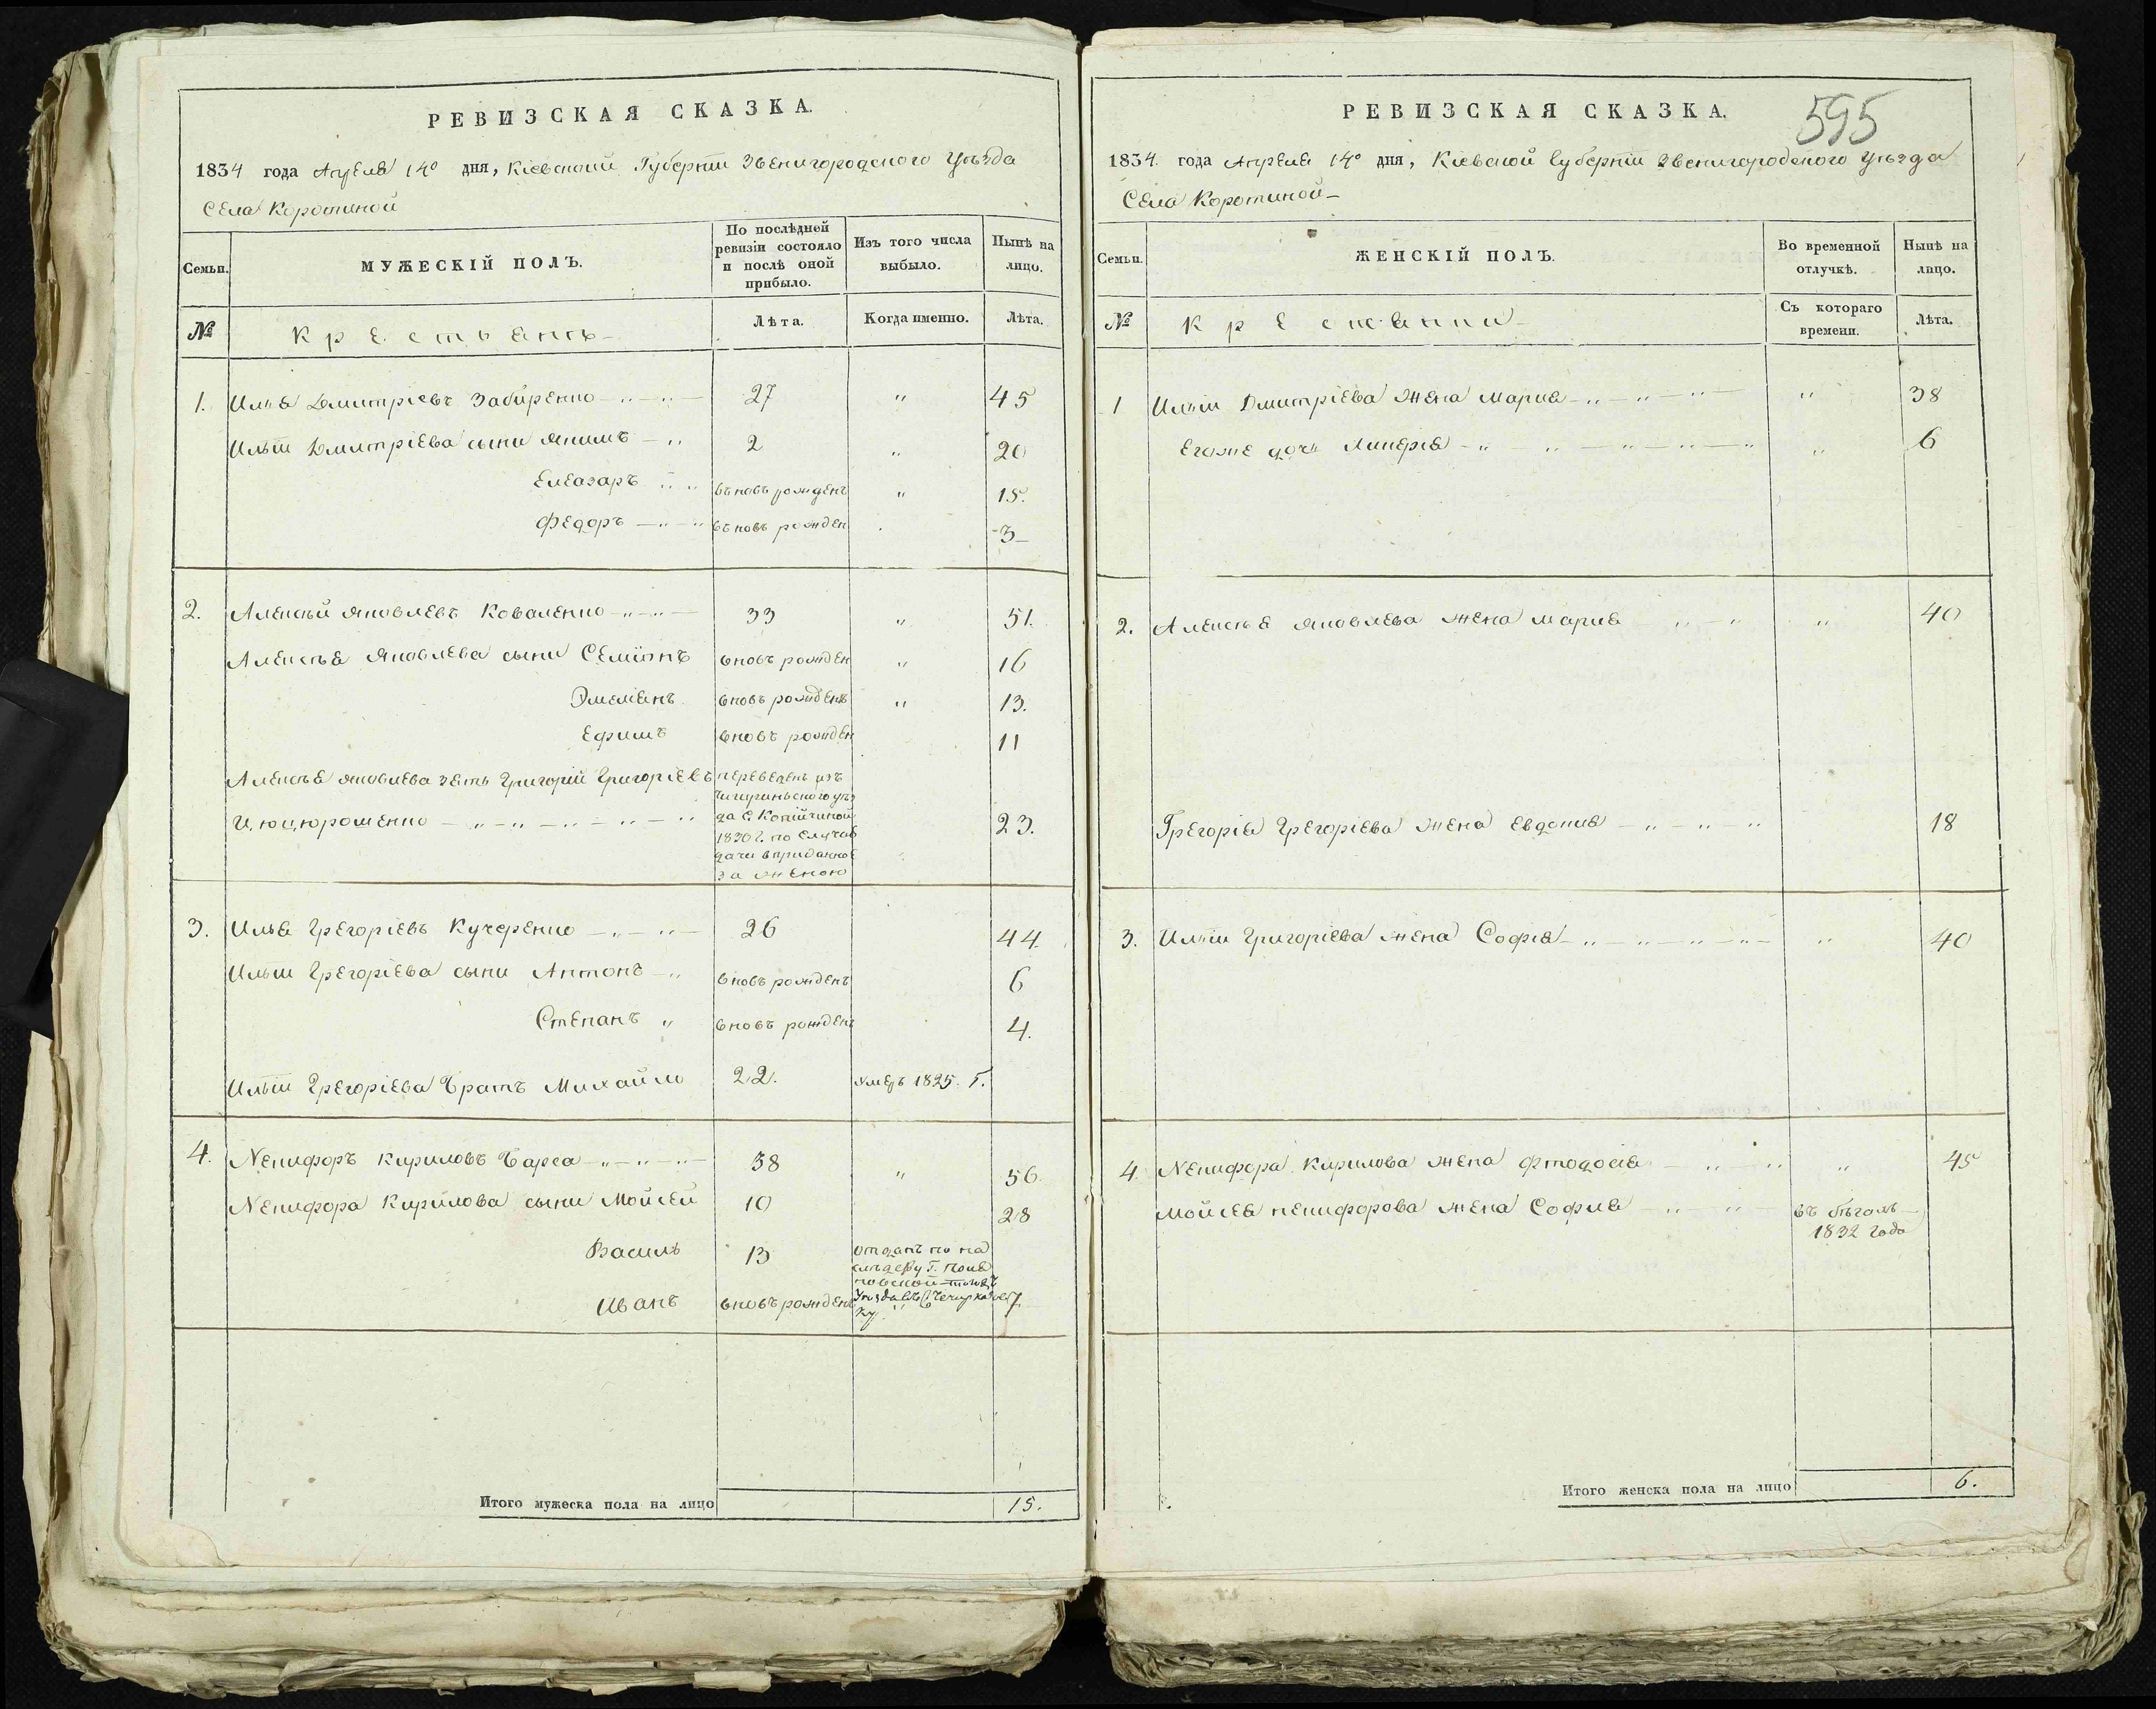 РЕВИЗСКАЯ СКАЗКА.
1834 года Апреля 14º дня, Кіевской Губерніи Звенигородского Уѣзда
Села Коротиной
Семьи.
МУЖЕСКІЙ ПОЛЪ.
По послѣдней
ревизіи состояло
и послѣ оной
прибыло.
Изъ того числа
выбыло.
Нынѣ на
лицо.
№
Крестьянъ
Лѣта.
Когда именно.
Лѣта.
1. Илья Дмитріевъ Забиренко 27 " 45
Ильи Дмитріева сыни Якимъ 2 " 20
Елеазаръ въновъ рожденъ " 15.
Федоръ въновъ рожден 3
2. Алексѣй Яковлевъ Коваленко 33 " 51.
Алексѣя Яковлева сыни Семіонъ вновъ рожден " 16
Эмеліянъ вновъ рожденъ " 13.
Ефимъ вновъ рожден 11
Алексѣя Яковлева зять Григорій Григоріевъ переведенъ изъ
Чигириньского уѣз
Цюцюрошенко да С. 23.
1830 г. по случаю
дачи в приданное
за женою
3. Илья Грегоріевъ Кучеренко 26 44.
Ильи Грегоріева сыни Антонъ вновъ рожденъ 6
Степанъ " вновъ рожденъ 4.
Ильи Грегоріева братъ Михайло 22. умеръ 1825. г.
4. Никифоръ Кириловъ Барса 38 " 56.
Никифора Кирилова сыни Мойсей 10 28
Василь 13 отданъ по на
Иванъ вновъ рожденъ 7
Итого мужеска пола на лицо 15.
РЕВИЗСКАЯ СКАЗКА.
595
1834. года Апреля 14º дня, Кіевской Губерніи Звенигородского Уѣзда
Села Коротиной
Семьи.
ЖЕНСКІЙ ПОЛЪ.
Во временной
отлучкѣ.
Нынѣ на
лицо.
№
Крестянки
Съ котораго
времени.
Лѣта.
1 Ильи Дмитріева жена Мария " 38
Егоже дочь Ликерія " 6
2. Алексѣя Яковлева жена Мария " 40
Грегорія Грегоріева жена Евдокия 18
3. Ильи Григоріева жена Софія " 40
4. Никифора Кирилова жена Фтодосія " 45
Мойсея Никифорова жена София въ бѣгахъ
1832 года
Итого женска пола на лицо 6.